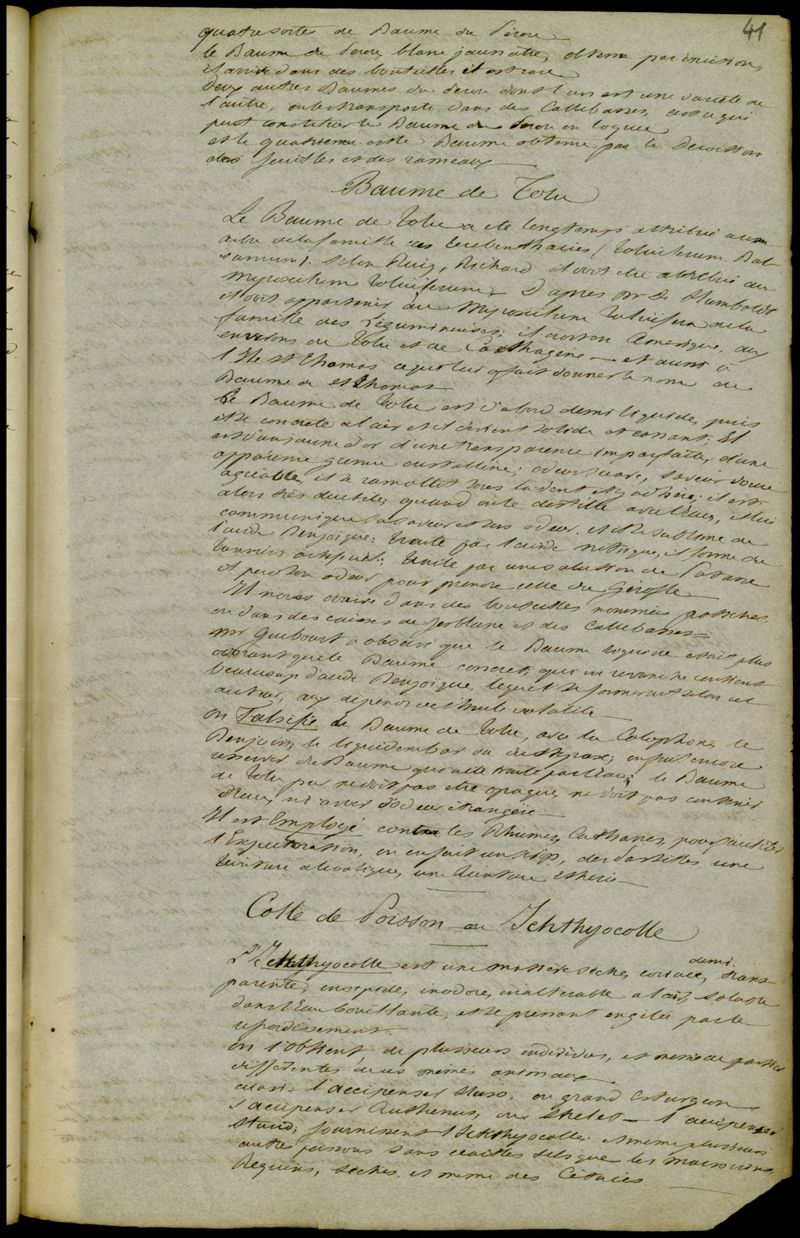 41
quatre sortes de Baume du Pérou
le Baume du Perou blanc jaunatre, obtenu par incision,
il arrive dans des bouteilles il est rare
Deux autres Baumes du Perou dont l'un est une variété de
l'autre, on les transporte dans des Callebasses, ce qui
peut constituer le Baume du Perou en coques
et le quatrieme est le Baume obtenu par la Decoction
des feuilles et des rameaux
Baume de Tolu
Le Baume de Tolu a été longtemps attribué a un
arbre de la famille des terebenthacées (Toluiferum Bal
samum). Selon Ruiz, Richard il doit etre attribué au
Myroxilum Toluiferum D'apres Mr De Humboldt
il doit appartenir au Myroxilum Toluifera de la
famille des Légumineuses; il croit en Amerique, aux
environs de Tolu et de Carthagene et aussi à
l'Ile St Thomas ce qui lui a fait donner le nom de
Baume de St Thomas
Le Baume de Tolu est d'abord demi liquide, puis
il se concrete a l'air et il devient solide et cassant. Il
est d'un jaune d'or d'une transparence imparfaite, d'une
apparence grenue cristalline; odeur suave, saveur douce
agréable, il se ramollit sous la dent et y adhère; il est
alors très ductile; quand on le distille avec l'eau, il lui
communique sa saveur et son odeur. il se sublime de
l'acide Benzoique; traité par l'acide nitrique, il forme du
tannin artificiel; traité par une solution de Potasse
il perd son odeur pour prendre celle du Girofle
Il nous arrive dans des bouteilles nommées potiches
ou dans des caisses de ferblanc et des callebasses
Mr Guibourt a observé que le Baume liquide etait plus
odorant que le Baume concret, qui en revanche contient
beaucoup d'acide Benzoique, lequel se formerait selon cet
auteur, aux dépens de l'huile volatile
On Falsifie le Baume de Tolu, avec la Colophone, le
Benjoin, le liquidembar ou du Styrax; on fait encore
resservir du Baume qui a été traité par l'eau; le Baume
de Tolu pur ne doit pas etre opaque, ne doit pas contenir
d'eau, ni avoir d'odeur étrangère
Il est Employé contre les Rhumes, Catharres, pour faciliter
l'Expectoration, on en fait un sirop, des pastilles une
teinture alcoolique, une teinture etherée
Colle de Poisson ou Ichthyocolle
L'Ichthyocolle est une matière sèche, coriace, demi trans
parente, insipide, inodore, inalterable a l'air, soluble
dans l'Eau bouillante, et se prenant en gelée par le
refroidissement.
On l'obtient de plusieurs individus, et meme de parties
differentes de ces mêmes animaux
ainsi l'accipenser Huso, ou grand Esturgeon
l'accipenser Ruthenus, ou Sterlet l'accipenser
Sturio, fournissent l'Ichthyocolle, et meme plusieurs
autres poissons sans écailles tels que les Marsouins
Requins, Sèches, et meme des Cétacés